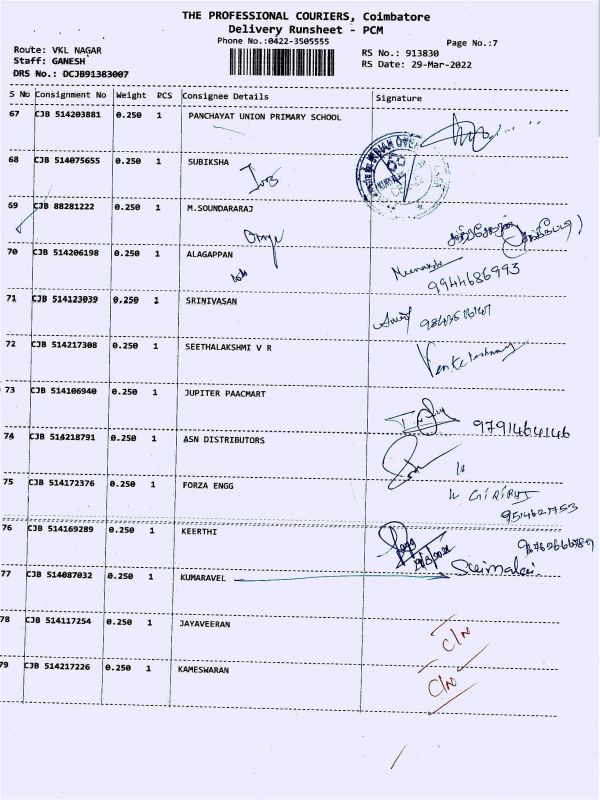 THE PROFESSIONAL COURIERS, Coimbatore
Delivery Runsheet - PCM
Phone No.:0422-3505555
Page No.:7
Route: VKL NAGAR
RS No.: 913830
Staff: GANESH
RS Date: 29-Mar-2022
DRS No.: DCJB91383007
S No Consignment No Weight PCS Consignee Details Signature
67 CJB 514203881 0.250 1 PANCHAYAT UNION PRIMARY SCHOOL
68 CJB 514075655 0.250 1 SUBIKSHA
69 CJB 88281222 0.250 1 M.SOUNDARARAJ
70 CJB 514206198 0.250 1 ALAGAPPAN
9944686993
71 CJB 514123039 0.250 1 SRINIVASAN
72 CJB 514217308 0.250 1 SEETHALAKSHMI V R
73 CJB 514106940 0.250 1 JUPITER PAACMART
9791464146
74 CJB 514218791 0.250 1 ASN DISTRIBUTORS
75 CJB 514172376 0.250 1 FORZA ENGG
76 CJB 514169289 0.250 1 KEERTHI
77 CJB 514087032 0.250 1 KUMARAVEL
78 CJB 514117254 0.250 1 JAYAVEERAN
C/N
79 CJB 514217226 0.250 1 KAMESWARAN
C/N